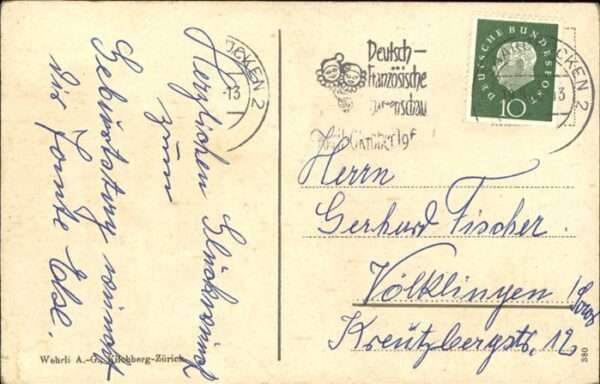 Herzlichen Glückwunsch
zum
Geburtstag wünscht
dir Tante Else.
Wehrli A.-G., Kilchberg-Zürich
CKEN 2
13
Deutsch-
Französische
Gartenschau
Oktober 19
DEUTSCHE BUNDESPOST
10
CKEN 2
13
Herrn
Gerhard Fischer.
Völklingen /Saar
Kreutzbergstr. 12
380